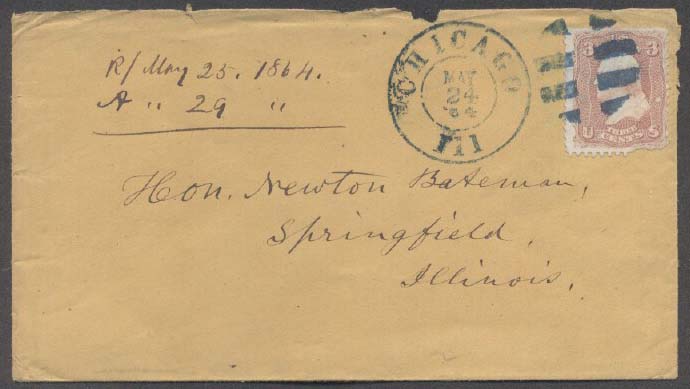 R/ May 25. 1864.
A „ 29 „
CHICAGO
MAY
24
64
Ill
3 3
U THREE CENTS S
Hon. Newton Bateman,
Springfield,
Illinois.